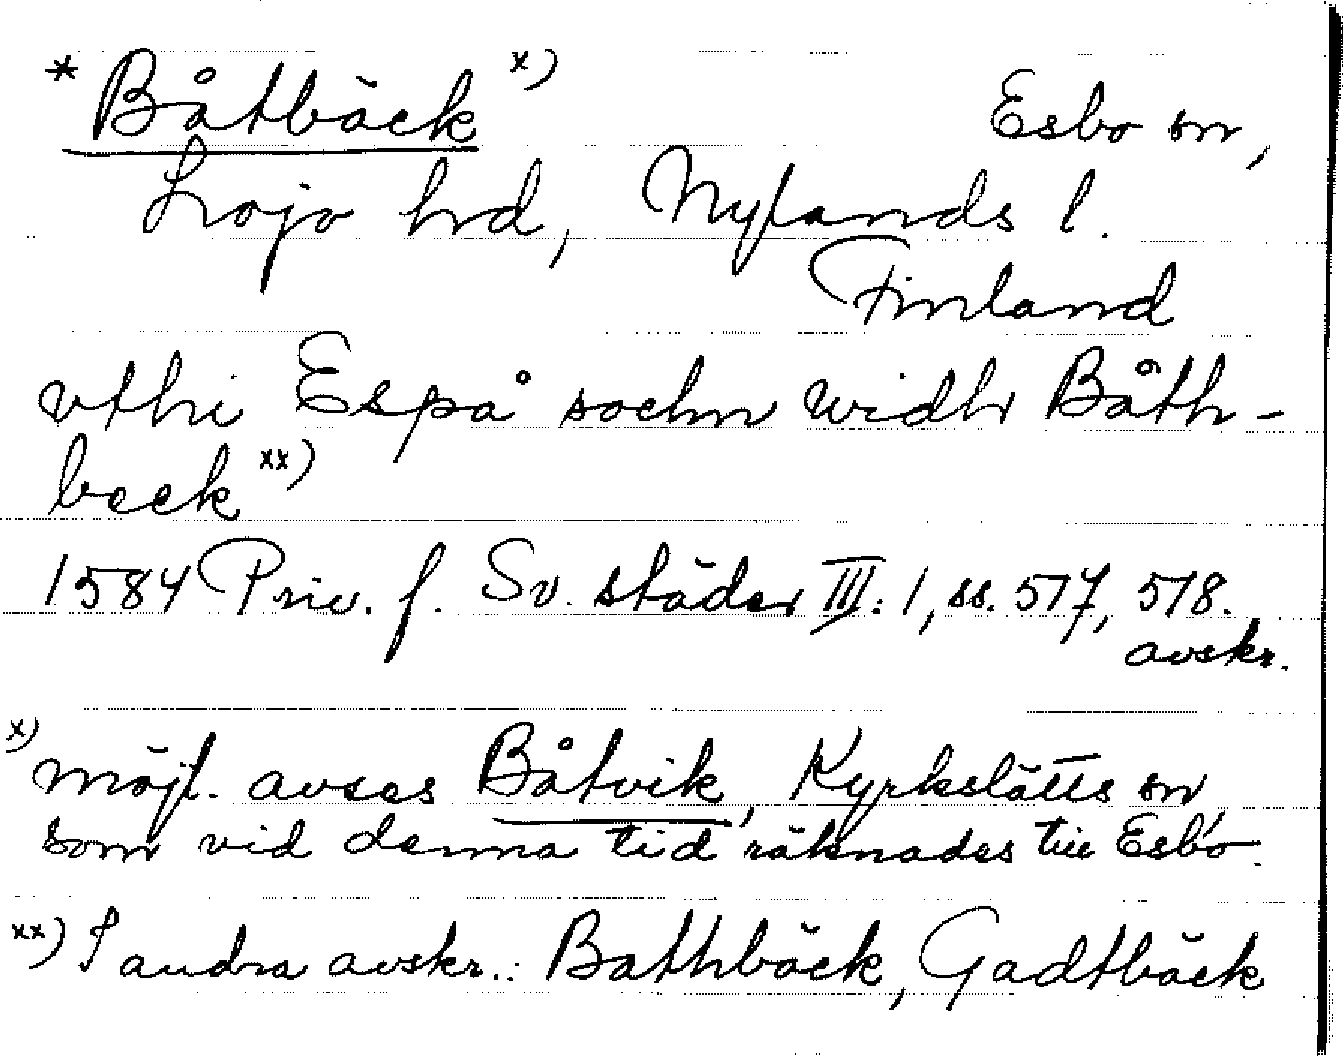 * Båtbäck x) Esbo sn,
Lojo hrd, Nylands l.
Finland
vthi Espå sochn widh Båth-
beck xx)
1584 Priv. f. Sv. städer III: 1, ss. 517, 518.
avskr.
x) möjl. avses Båtvik, Kyrkslätts sn,
som vid denna tid räknades till Esbo.
xx) I andra avskr.: Bathbäck, Gadtbäck